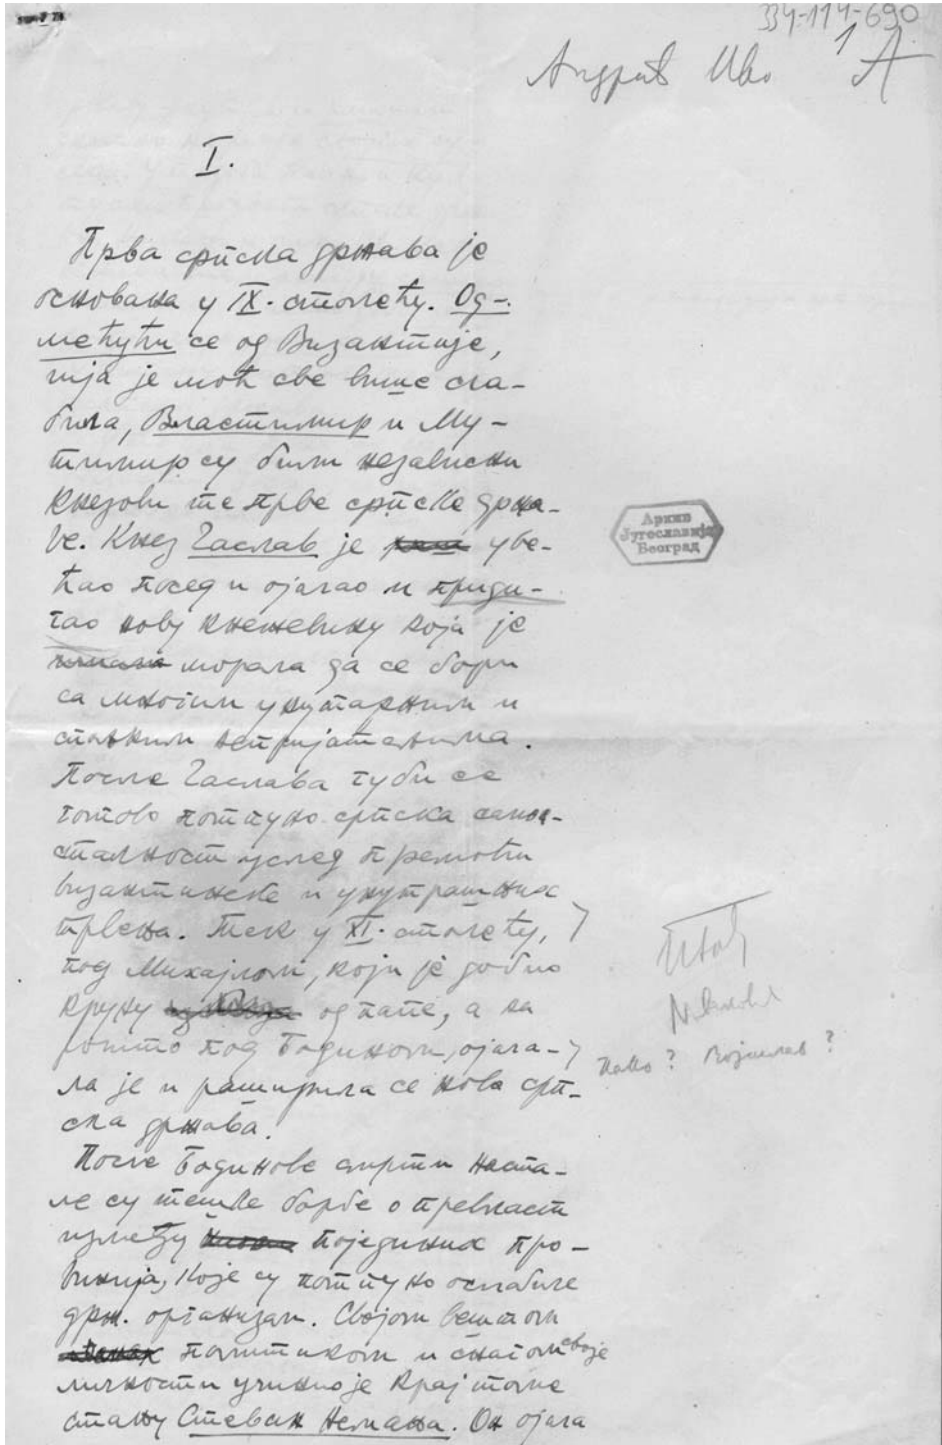 334-114-690
1 А
Андрић Иво
I.
Прва српска држава је
основана у IX. столећу. Од-
мећући се од Византије,
чија је моћ све више сла-
била, Властимир и Му-
тимир су били независни
кнезови те прве српске држа-
ве. Кнез Часлав је уве-
ћао посед и ојачао и приди-
гао нову кнежевину која је
имала морала да се бори
са многим унутарњим и
спољним непријатељима.
После Часлава губи се
готово потпуно српска само-
сталност услед премоћи
византинске и унутрашњих
трвења. Тек у XI. столећу,
под Михајлом, који је добио
круну од папе, а за
под Бодином, ојача-
ла је и раширила се нова срп-
ска држава.
После Бодинове смрти наста-
ле су тешке борбе о превласт
између појединих про-
винција, које су потпуно ослабиле
држ. организам. Својом вештом
политиком и снагом своје
личности учинио је крај томе
стању Стеван Немања. Он ојача
Архив
Југославије
Београд
како? Војислав?